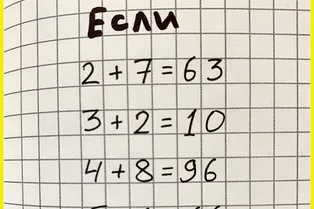 Если
2+7=63
3+2=10
4+8=96